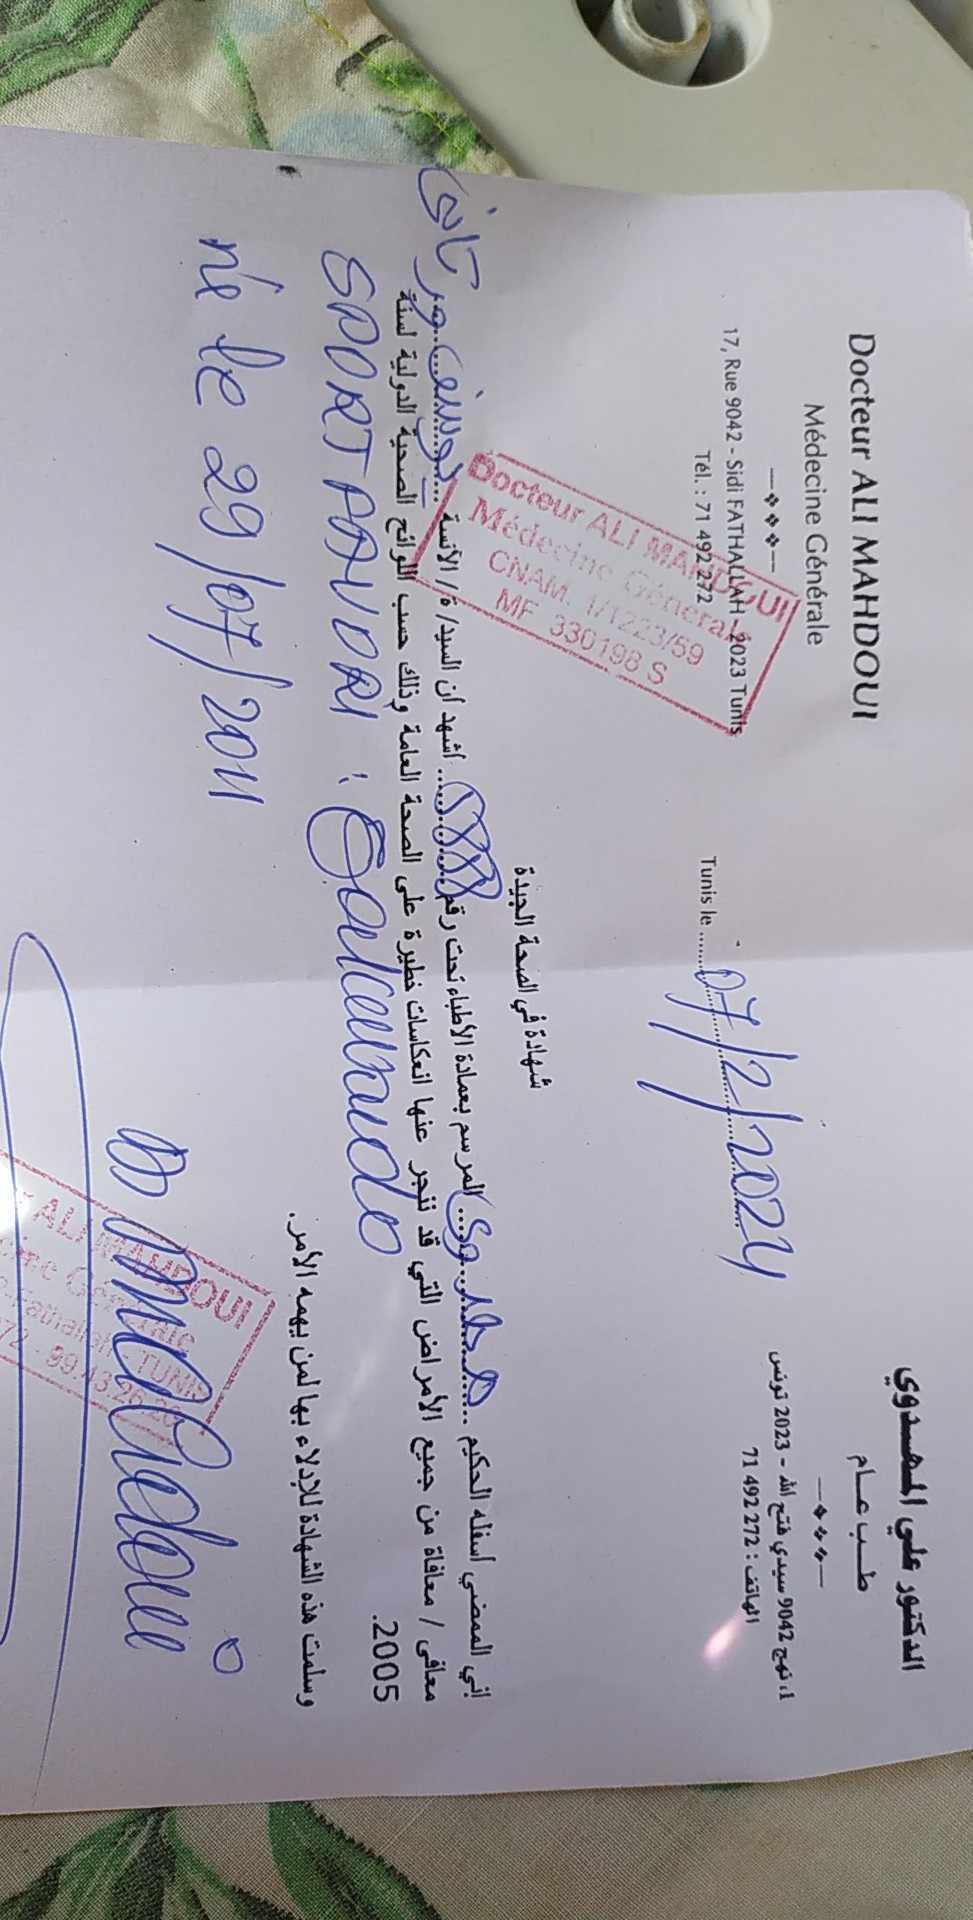 Docteur ALI MAHDOUI
Médecine Générale
17, Rue 9042 - Sidi FATHALLAH - 2023 Tunis
Tél. : 71 492 272
الدكتور علي المهدوي
طب عام
نهج 9042 سيدي فتح الله - 2023 تونس
الهاتف : 71 492 272
Docteur ALI MAHDOUI
Médecine Générale
CNAM. 1/1223/59
MF 330198 S
Tunis le 07/2/2024
شهادة في الصحة الجيدة
إني الممضي أسفله الحكيم المرسم بعمادة الأطباء تحت رقم أشهد أن السيد/ة/ الآنسة
معافى / معافاة من جميع الأمراض التي قد تنجر عنها انعكاسات خطيرة على الصحة العامة وذلك حسب اللوائح الصحية الدولية لسنة
2005.
وسلمت هذه الشهادة للإدلاء بها لمن يهمه الأمر.
né le 29/07/2011
ALI MAHDOUI
TUNIS